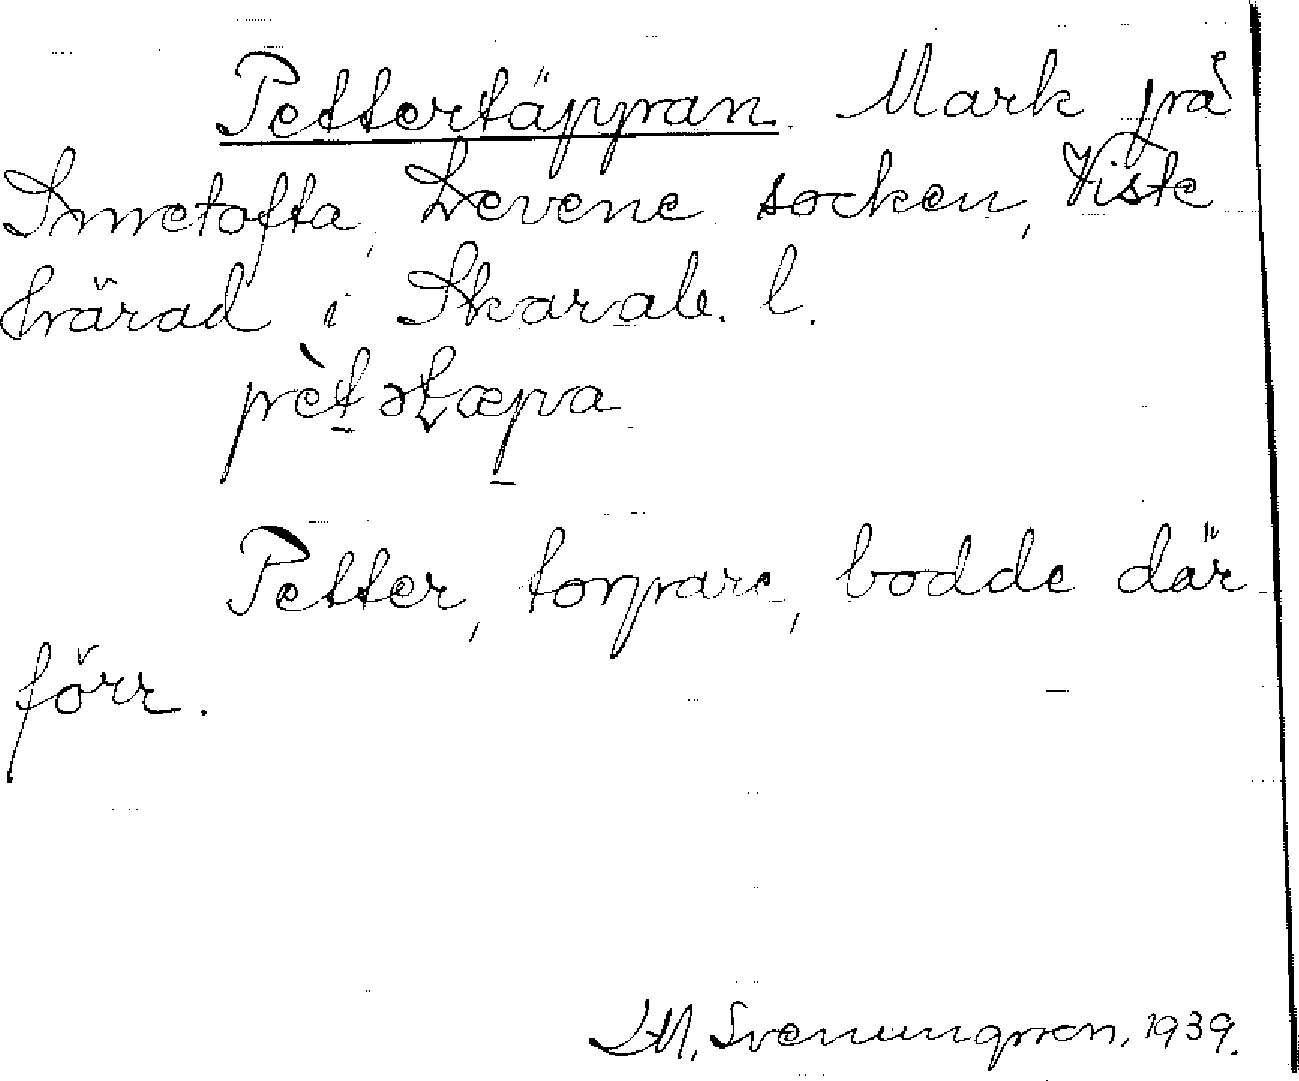 Pettertäppan. Mark på
Innetofta, Levene socken, Viste
härad i Skarab. l.
pèt̠ətæp̠a
Petter, torpare, bodde där
förr.
LM. Svenungsson, 1939.